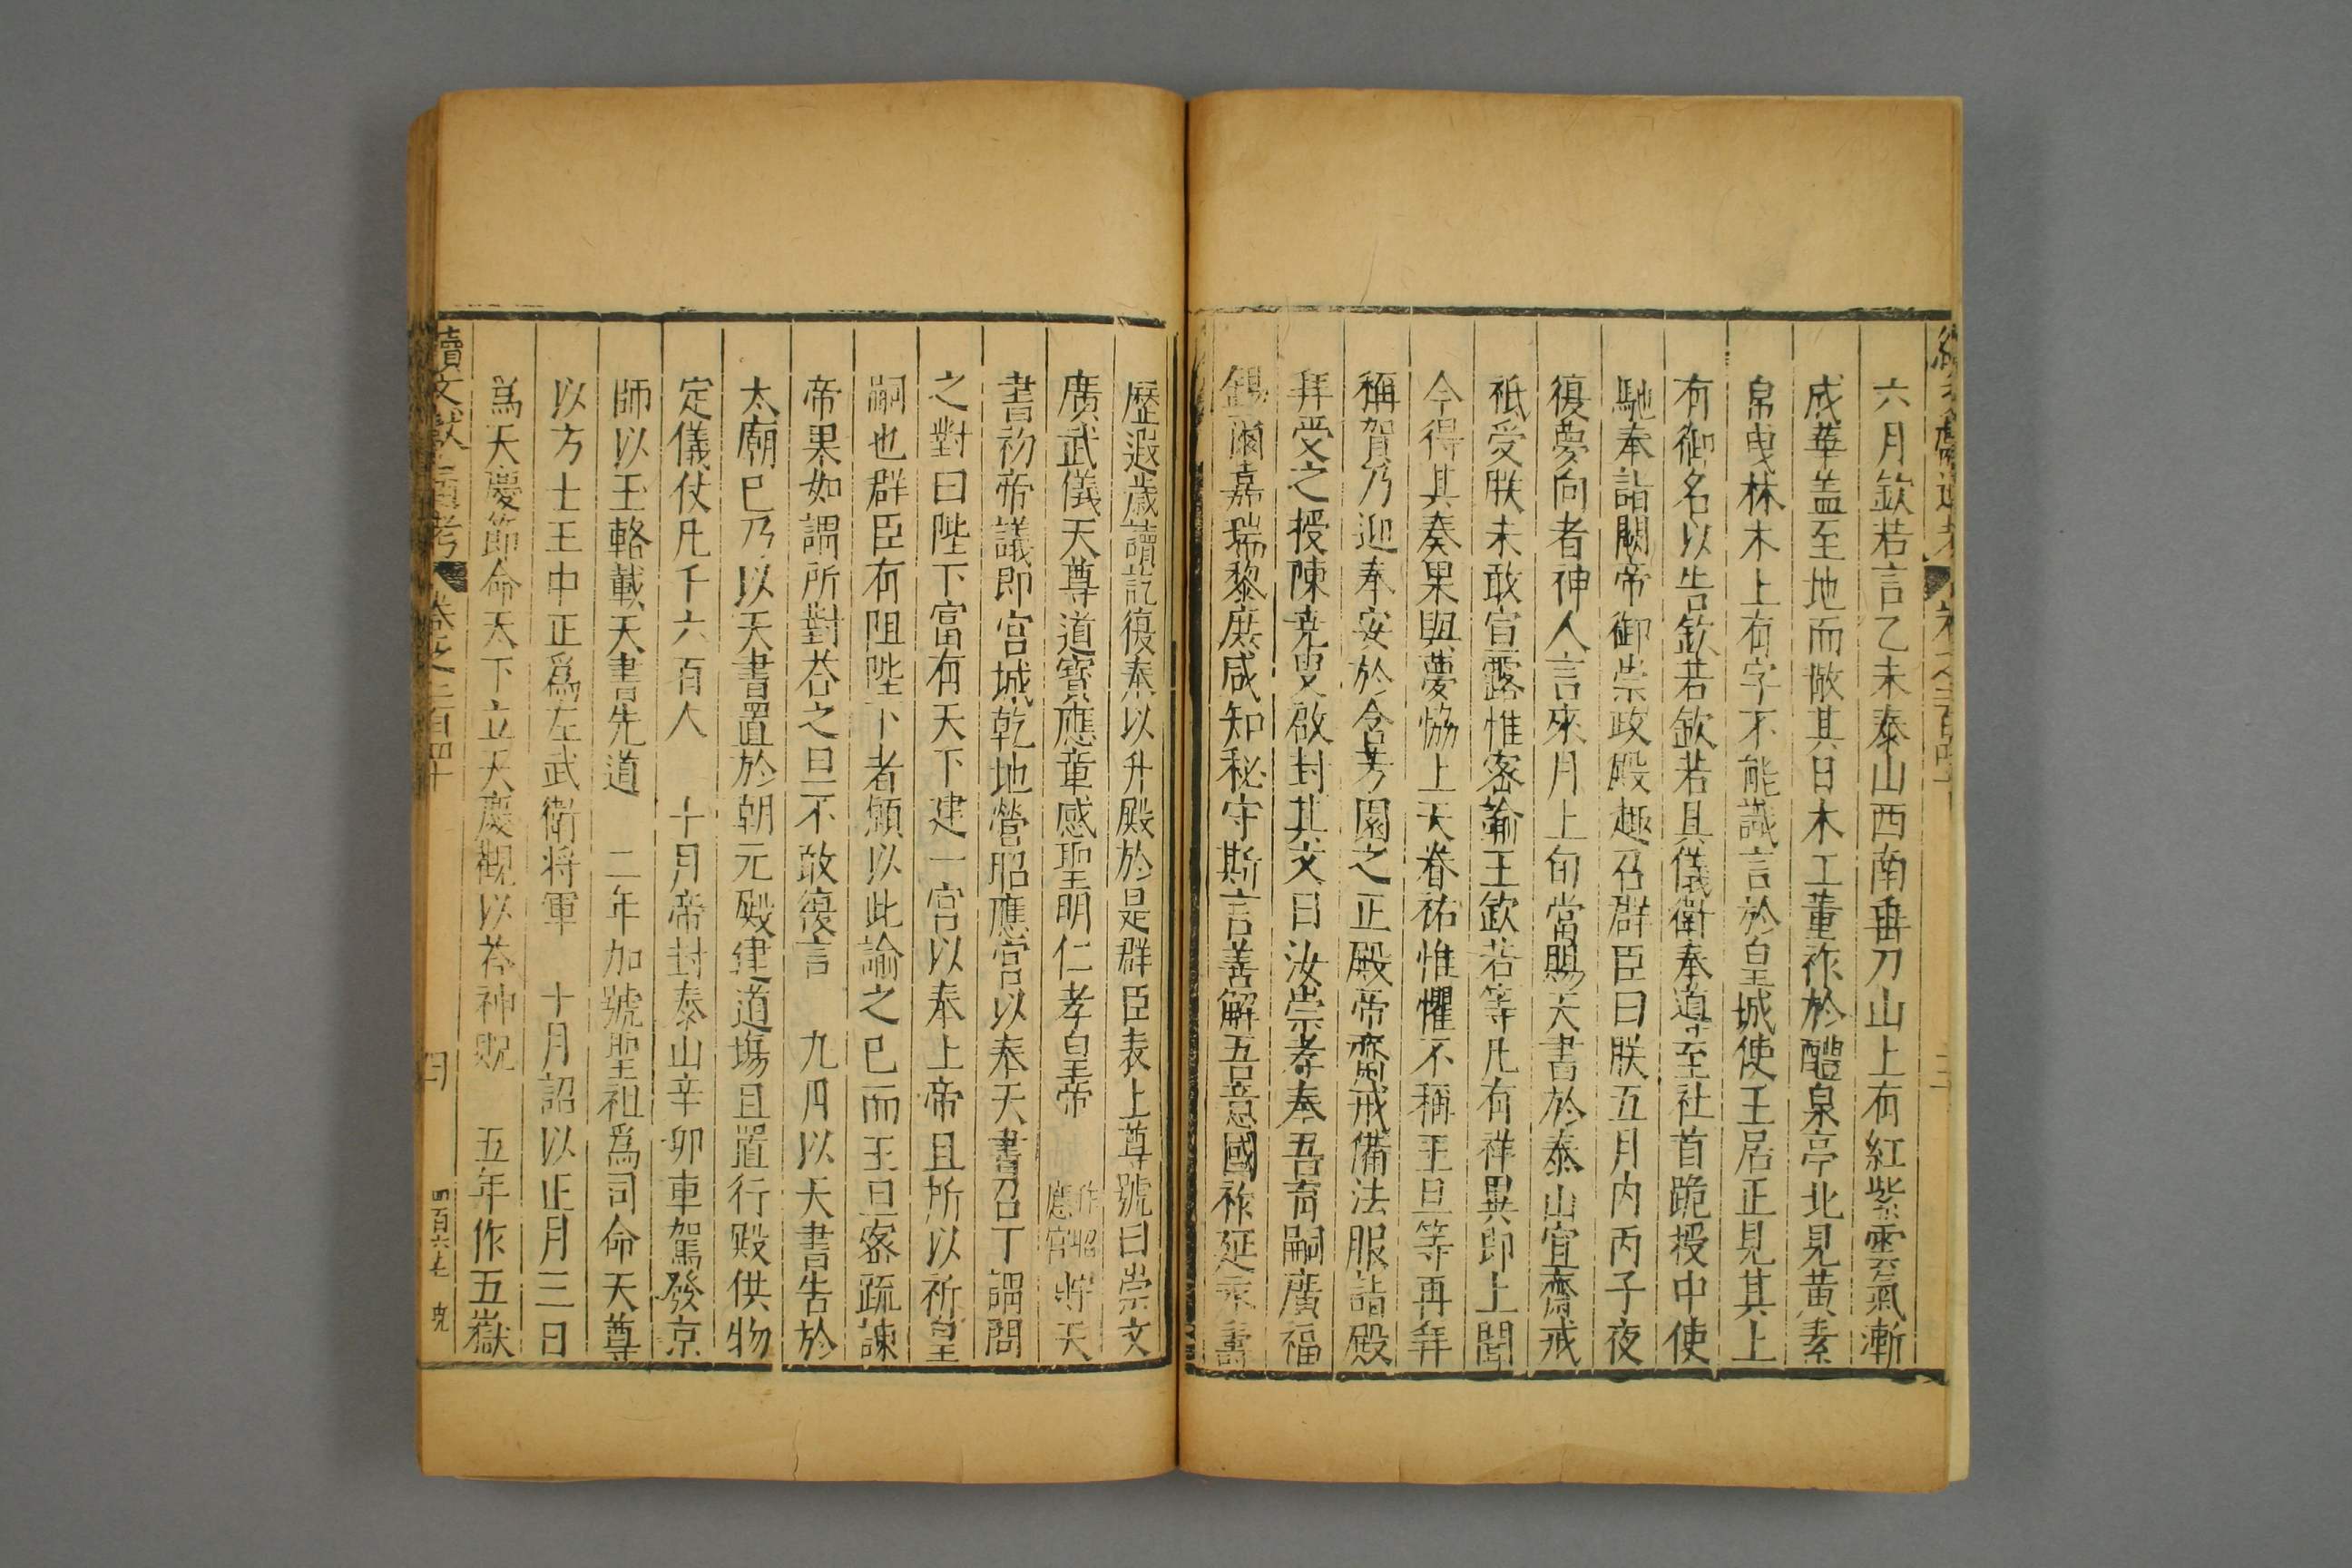 六月欽若言乙未泰山西南垂刀山上有紅紫雲氣漸
成華蓋至地而散其日木工董祚於醴泉亭北見黃素
帛曳林木上有字不能識言於皇城使王居正見其上
有御名以告欽若欽若具儀衛奉道至社首跪授中使
馳奉詣闕帝御崇政殿趣召群臣曰朕五月內丙子夜
復夢向者神人言來月上旬當賜天書於泰山宜齋戒
祗受朕未敢宣露惟密諭王欽若等凡有祥異即上聞
今得其奏果與夢協上天眷祐惟懼不稱王旦等再拜
稱賀乃迎奉安於含芳園之正殿帝齋戒備法服詣殿
拜受之授陳堯叟啟封其文曰汝崇孝奉吾育嗣廣福
錫爾嘉瑞黎庶咸知秘守斯言善解吾意國祚延永壽
歷遐歲讀訖復奉以升殿於是群臣表上尊號曰崇文
廣武儀天尊道寶應章感聖明仁孝皇帝 作昭應宮將天
書初帝議即宮城乾地營昭應宮以奉天書召丁謂問
之對曰陛下富有天下建一宮以奉上帝且所以祈皇
嗣也群臣有阻陛下者願以此諭之已而王旦密疏諫
帝果如謂所對荅之旦不敢復言 九月以天書告於
太廟巳乃以天書置於朝元殿建道場且置行殿供物
定儀仗凡千六百人 十月帝封泰山辛卯車駕發京
師以玉輅載天書先道 二年加號聖祖爲司命天尊
以方士王中正爲左武衛將軍 十月詔以正月三日
爲天慶節命天下立天慶觀以荅神貺 五年作五嶽
續文獻通考 卷之二百四十 四百六七